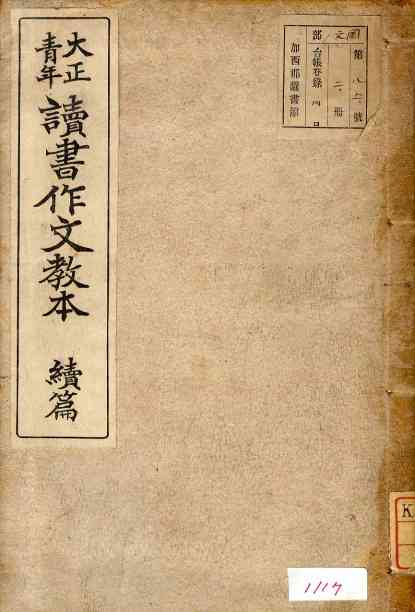 大正
青年
讀書作文教本 續篇
國文部
第八六號
二冊
台帳登錄
加西郡圖書館
K
1117